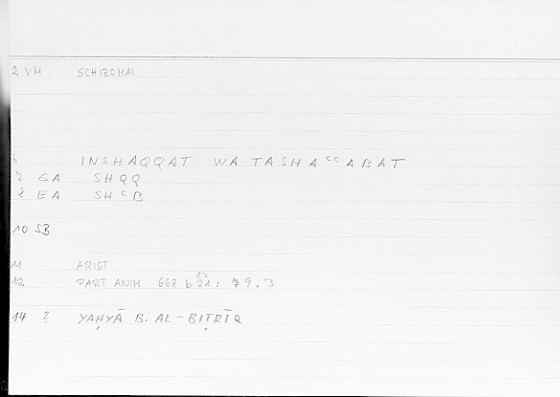 2 VM SCHIZOMAI
6 INSHAQQAT WA TASHAᶜᶜABAT
7 EA SHQQ
8 EA SHᶜB
10 SB
11 ARIST
12 PART ANIM 668 b 21: 79.3
14 ? YAḤYĀ B. AL-BIṬRĪQ